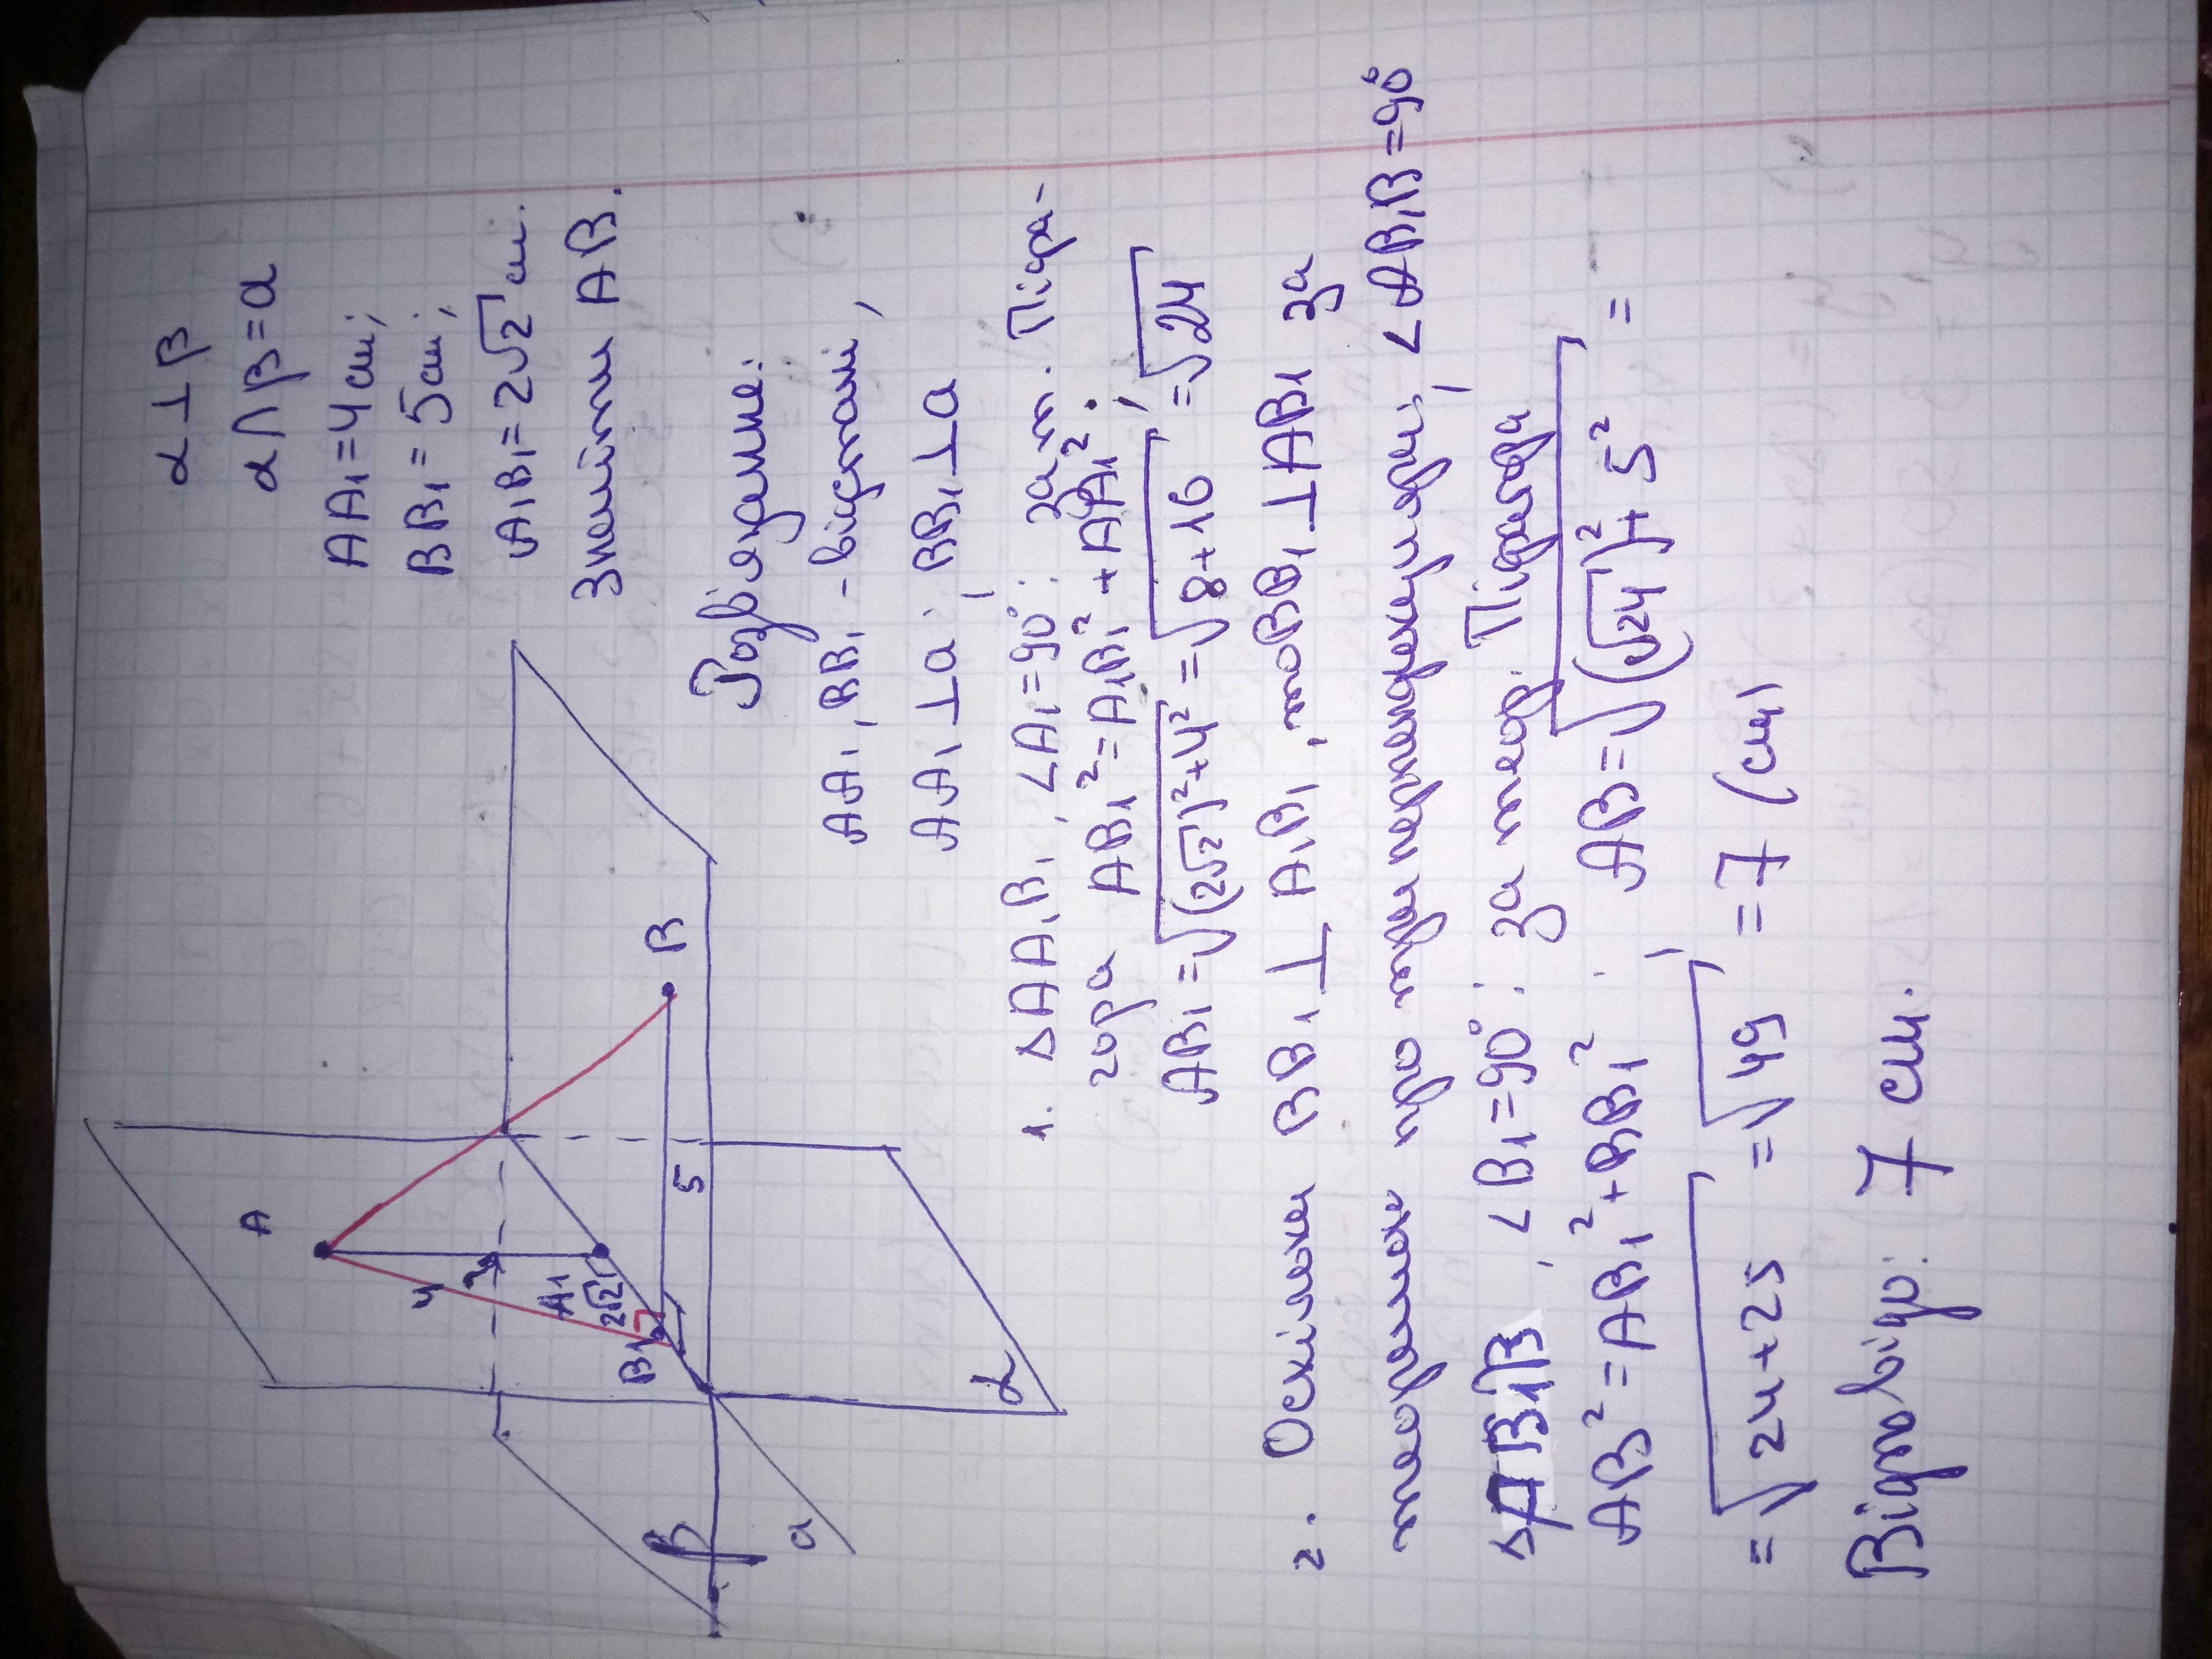 α ⊥ β
α ∩ β = a
AA₁ = 4 см;
BB₁ = 5 см;
A₁B₁ = 2√2 см.
Знайти AB.
A
4
A₁
2√2
B₁
5
B
β
a
α
Розв'язання:
AA₁, BB₁ - відстані,
AA₁ ⊥ a; BB₁ ⊥ a
1. △AA₁B₁, ∠A₁ = 90°: за т. Піфа-
гора AB₁² = A₁B₁² + AA₁²;
AB₁ = √((2√2)² + 4²) = √(8+16) = √24
2. Оскільки BB₁ ⊥ A₁B₁, то BB₁ ⊥ AB₁ за
теоремою про три перпендикуляри; ∠AB₁B = 90°
△AB₁B, ∠B₁ = 90°: за теор. Піфагора
AB² = AB₁² + BB₁²; AB = √((√24)² + 5²) =
= √(24+25) = √49 = 7 (см)
Відповідь: 7 см.